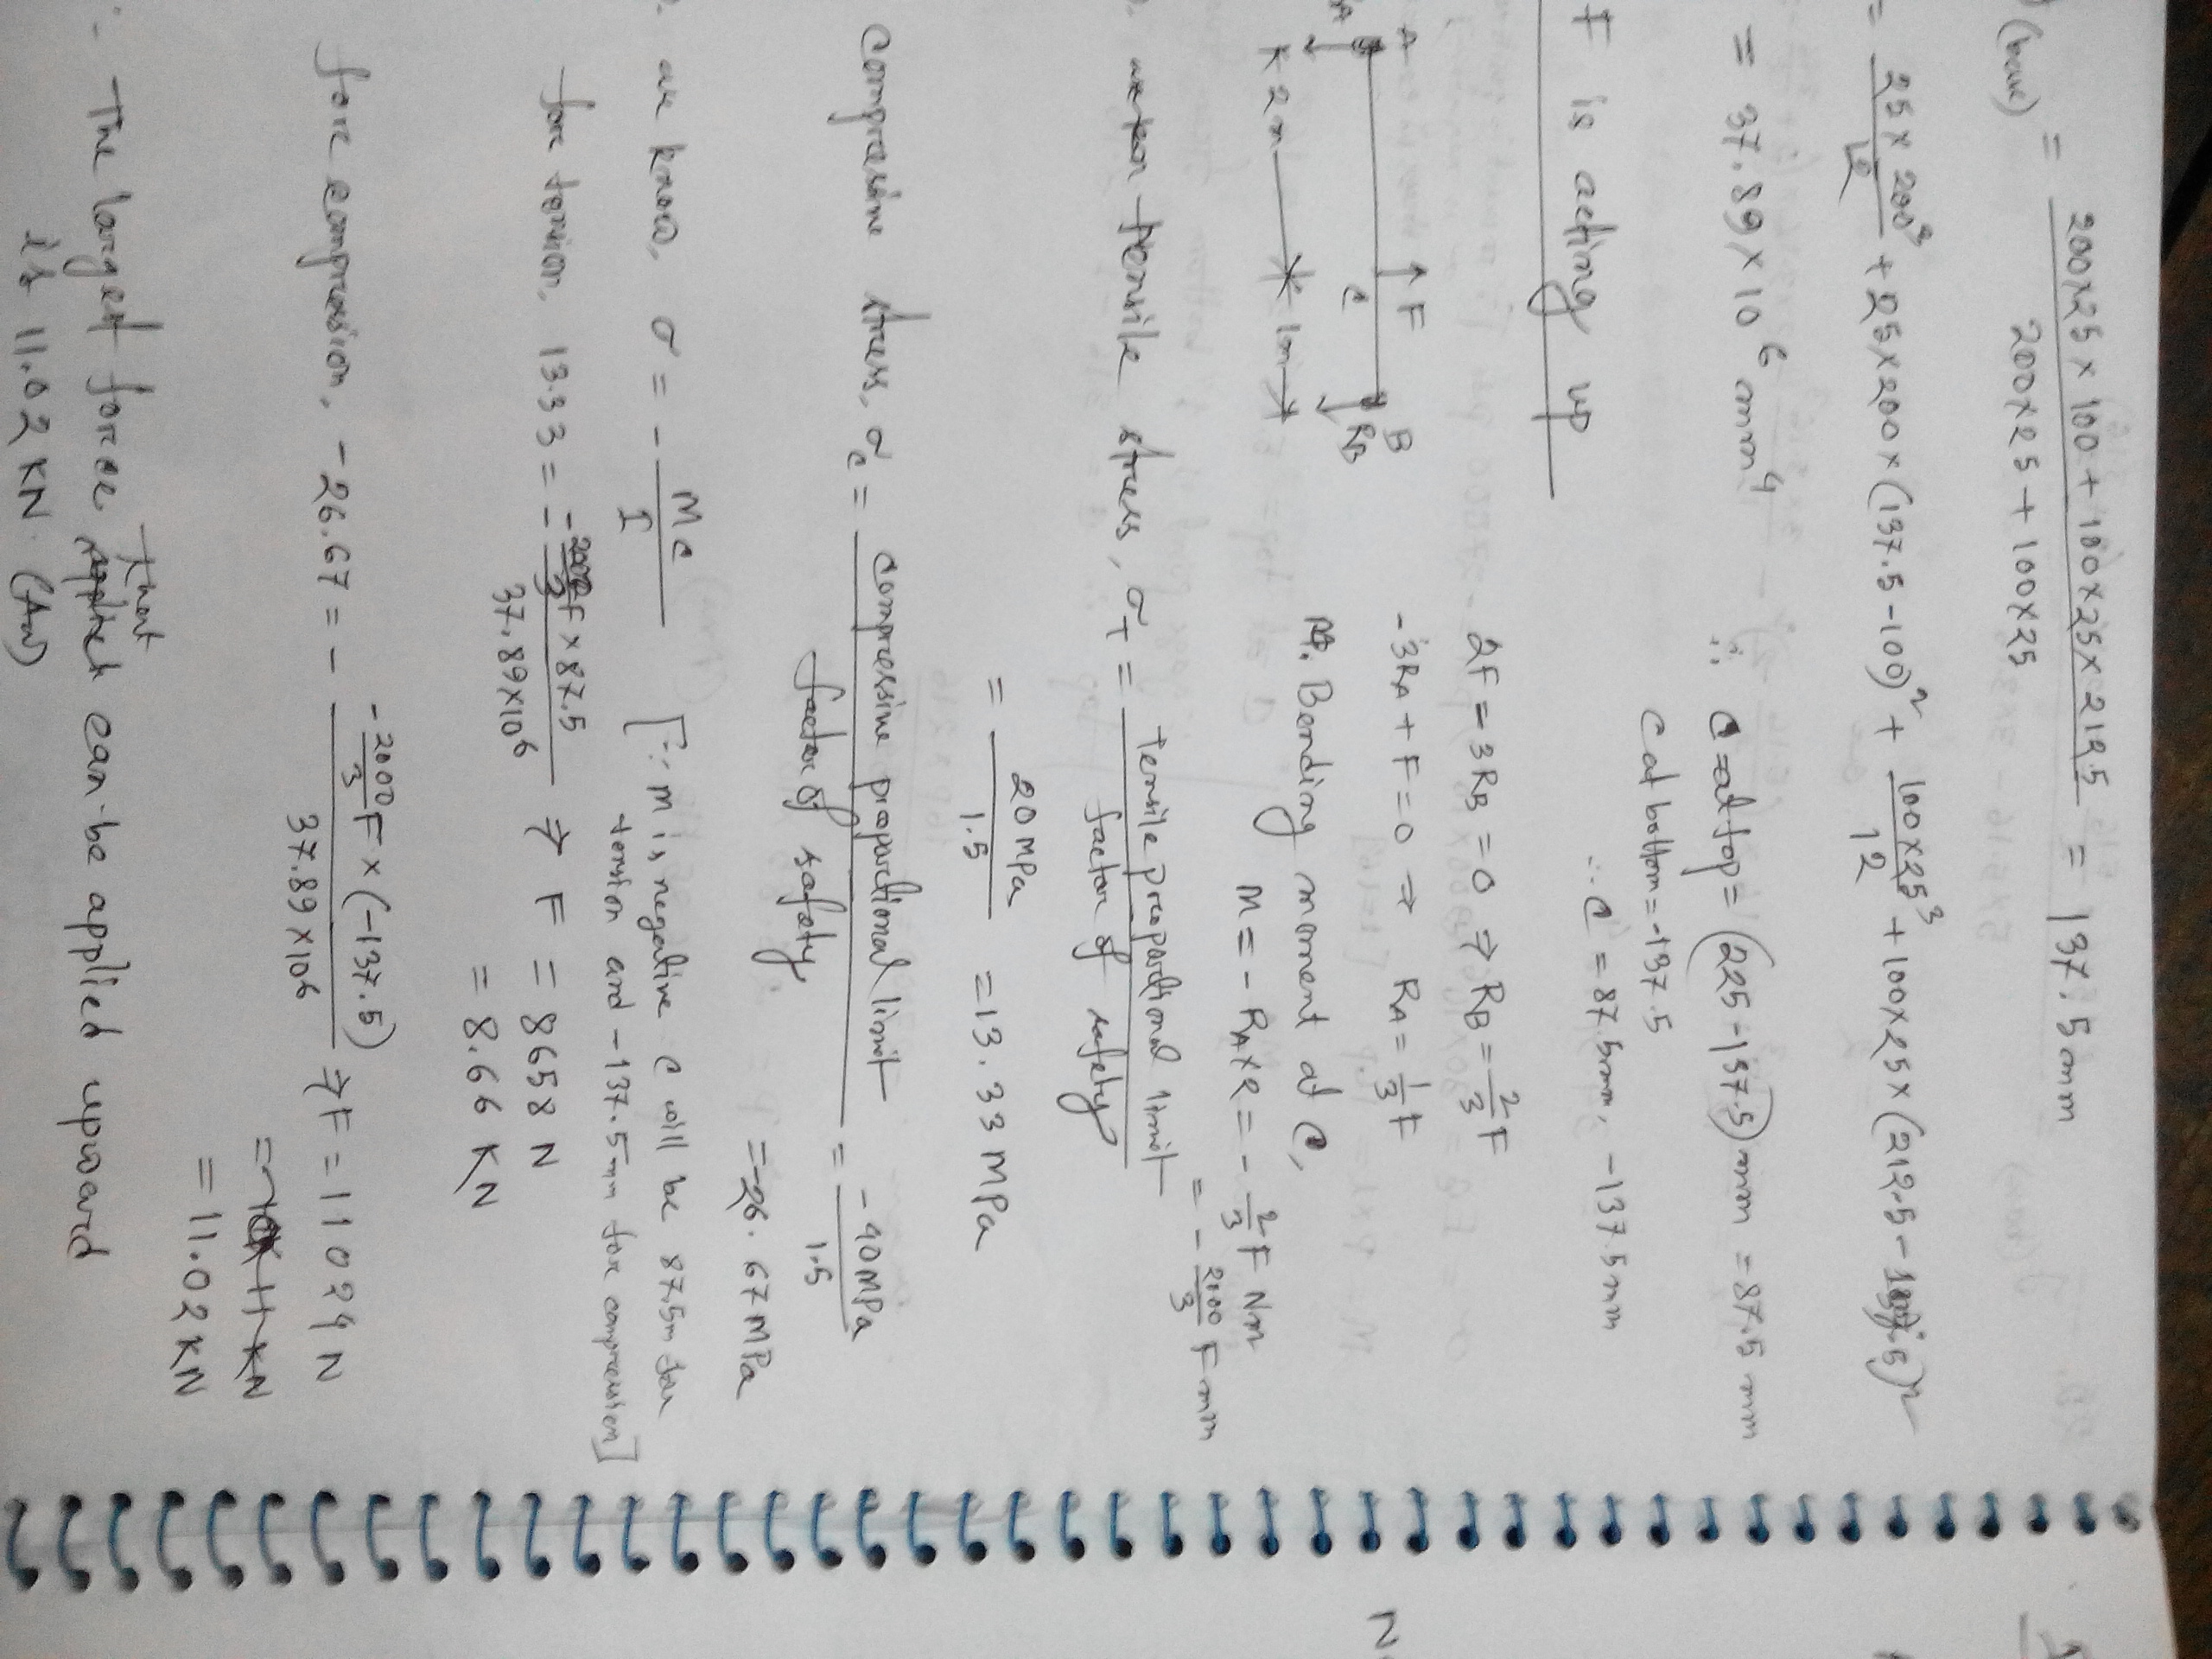 (base) = 200×25×100+100×25×212.5 / 200×25+100×25 = 137.5mm
= 25×200³/12 + 25×200×(137.5-100)² + 100×25³/12 + 100×25×(212.5-137.5)²
= 37.89×10⁶ mm⁴
∴ C at top = (225-137.5)mm = 87.5 mm
C at bottom = -137.5
∴ C = 87.5mm, -137.5mm
F is acting up
A F B
C RB
2m 1m
2F = 3RB = 0 ⇒ RB = 2/3 F
-3RA + F = 0 ⇒ RA = 1/3 F
At. Bending moment at C,
M = -RA×2 = -2/3 F Nm
= -2000/3 F mm
tensile stress, σT = Tensile proportional limit / factor of safety
= 20 MPa / 1.5 = 13.33 MPa
Compressive stress, σc = compressive proportional limit / factor of safety = -40MPa / 1.5
= -26.67 MPa
we know, σ = - Mc / I [∵ M is negative C will be 87.5m for
tension and -137.5mm for compression]
for tension, 13.33 = - -2000/3 F × 87.5 / 37.89×10⁶ ⇒ F = 8658 N
= 8.66 KN
fore compression, -26.67 = - -2000/3 F×(-137.5) / 37.89×10⁶ ⇒ F = 11024 N
= 11 KN
= 11.02 KN
∴ The largest force that can be applied upward
is 11.02 KN. (Ans)
N